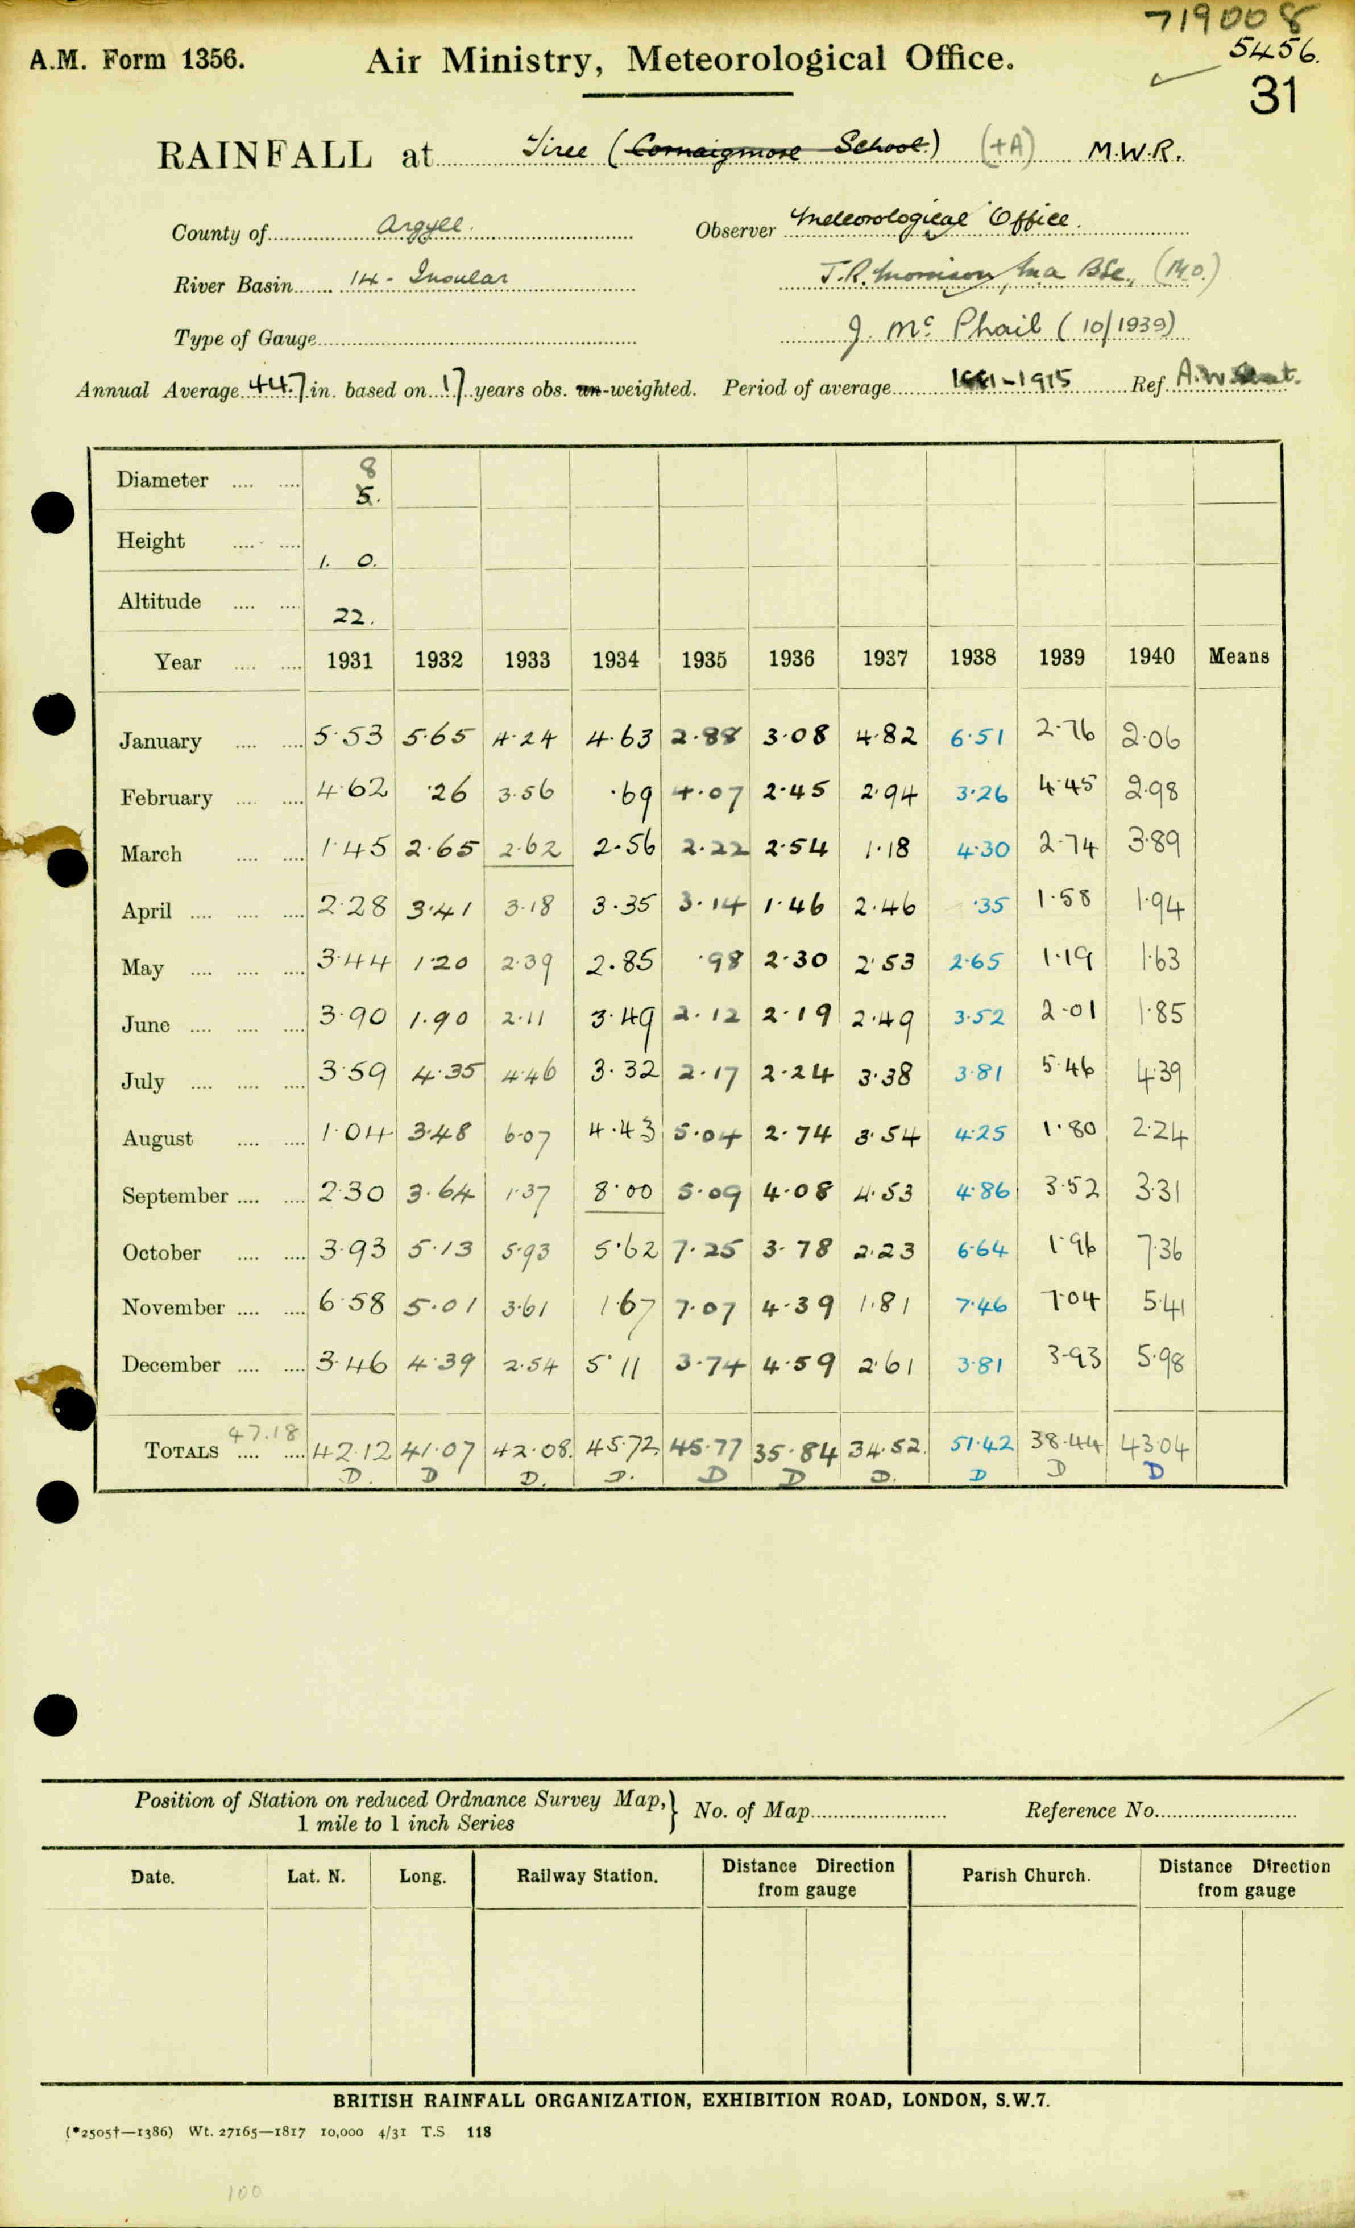 719008
5456.
A.M. Form 1356. Air Ministry, Meteorological Office.
31
RAINFALL at Tiree (Cornaigmore School) (+A) M.W.R.
County of Argyll. Observer Meteorological Office.
River Basin 14 - Insular J.R. Morrison, M.A. BSc., (M.O.)
Type of Gauge J. Mc Phail (10/1939)
Annual Average 44.7 in. based on 17 years obs. un-weighted. Period of average 1881-1915 Ref.
Diameter 8
5.
Height 1. 0.
Altitude 22.
Year 1931 1932 1933 1934 1935 1936 1937 1938 1939 1940 Means
January 5.53 5.65 4.24 4.63 2.88 3.08 4.82 6.51 2.76 2.06
February 4.62 .26 3.56 .69 4.07 2.45 2.94 3.26 4.45 2.98
March 1.45 2.65 2.62 2.56 2.22 2.54 1.18 4.30 2.74 3.89
April 2.28 3.41 3.18 3.35 3.14 1.46 2.46 .35 1.58 1.94
May 3.44 1.20 2.39 2.85 .98 2.30 2.53 2.65 1.19 1.63
June 3.90 1.90 2.11 3.49 2.12 2.19 2.49 3.52 2.01 1.85
July 3.59 4.35 4.46 3.32 2.17 2.24 3.38 3.81 5.46 4.39
August 1.04 3.48 6.07 4.43 5.04 2.74 3.54 4.25 1.80 2.24
September 2.30 3.64 1.37 8.00 5.09 4.08 4.53 4.86 3.52 3.31
October 3.93 5.13 5.93 5.62 7.25 3.78 2.23 6.64 1.96 7.36
November 6.58 5.01 3.61 1.67 7.07 4.39 1.81 7.46 7.04 5.41
December 3.46 4.39 2.54 5.11 3.74 4.59 2.61 3.81 3.93 5.98
47.18
TOTALS 42.12 41.07 42.08. 45.72 45.77 35.84 34.52. 51.42 38.44 43.04
D. D D. D. D D D. D D D
Position of Station on reduced Ordnance Survey Map, } No. of Map Reference No.
1 mile to 1 inch Series
Date. Lat. N. Long. Railway Station. Distance Direction Parish Church. Distance Direction
from gauge from gauge
BRITISH RAINFALL ORGANIZATION, EXHIBITION ROAD, LONDON, S.W.7.
(*2505†—1386) Wt. 27165—1817 10,000 4/31 T.S 118
100